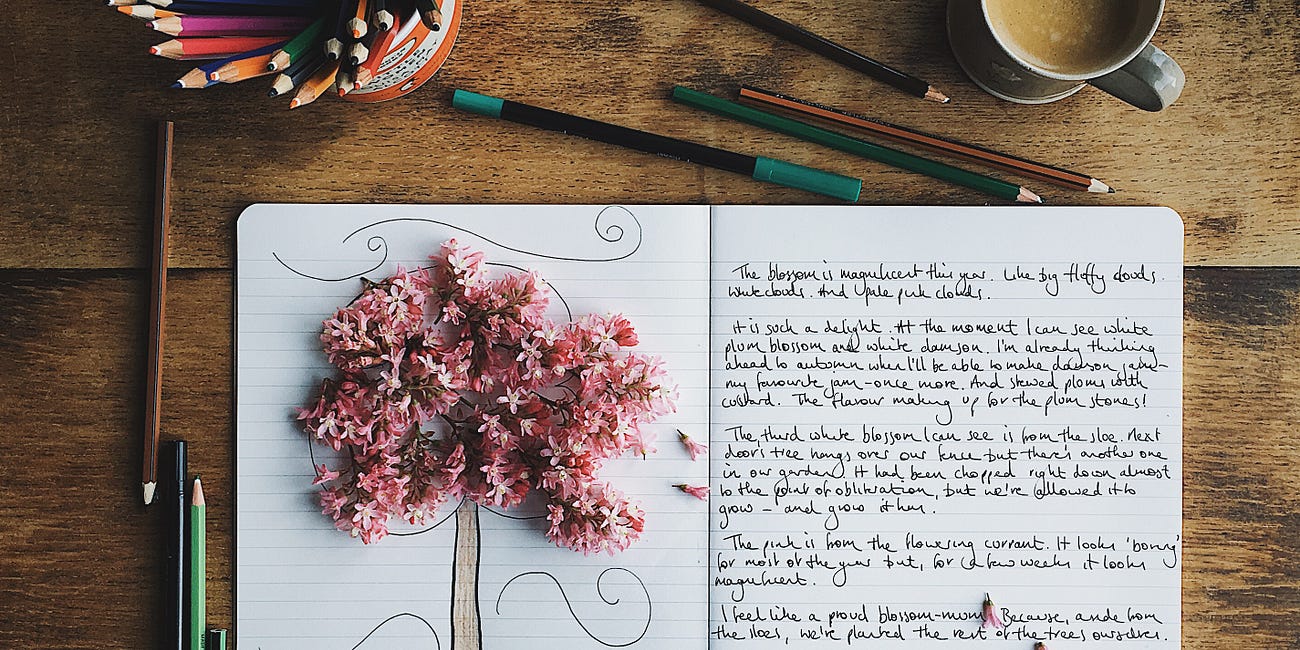 The blossom is magnificent this year. Like big fluffy clouds.
White clouds. And pale pink clouds.
It is such a delight. At the moment I can see white
plum blossom and white damson. I'm already thinking
ahead to autumn when I'll be able to make damson jam -
my favourite jam - once more. And stewed plums with
custard. The flavour making up for the plum stones!
The third white blossom I can see is from the sloe. Next
door's tree hangs over our fence but there's another one
in our garden. It had been chopped right down almost
to the point of obliteration, but we've allowed it to
grow - and grow it has.
The pink is from the flowering currant. It looks 'boring'
for most of the year but, for a few weeks it looks
magnificent.
I feel like a proud blossom-mum. Because, aside from
the sloes, we've planted the rest of the trees ourselves.